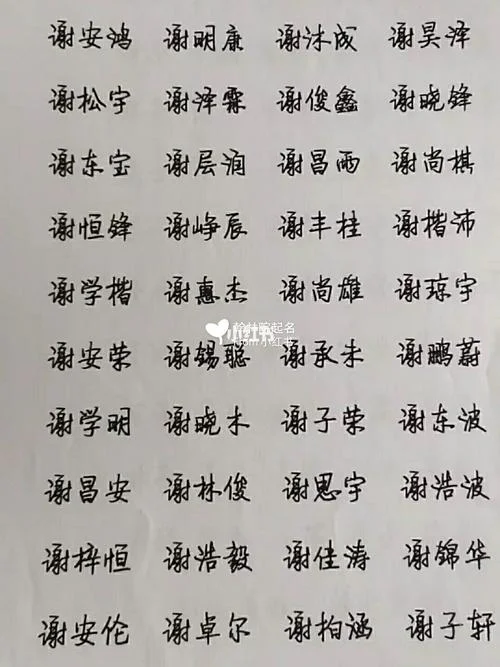 谢安鸿 谢明康 谢沐成 谢昊泽
谢松宇 谢泽霖 谢俊鑫 谢晓锋
谢东宝 谢层润 谢昌西 谢尚棋
谢恒锋 谢峥辰 谢丰桂 谢楷沛
谢学楷 谢惠杰 谢尚雄 谢琼宇
小红书 起名
小红书
谢安荣 谢锡聪 谢承未 谢鹏蔚
谢学明 谢晓木 谢子荣 谢东波
谢昌安 谢林俊 谢思宇 谢浩波
谢梓恒 谢浩毅 谢佳涛 谢锦华
谢安伦 谢卓尔 谢柏涵 谢子轩